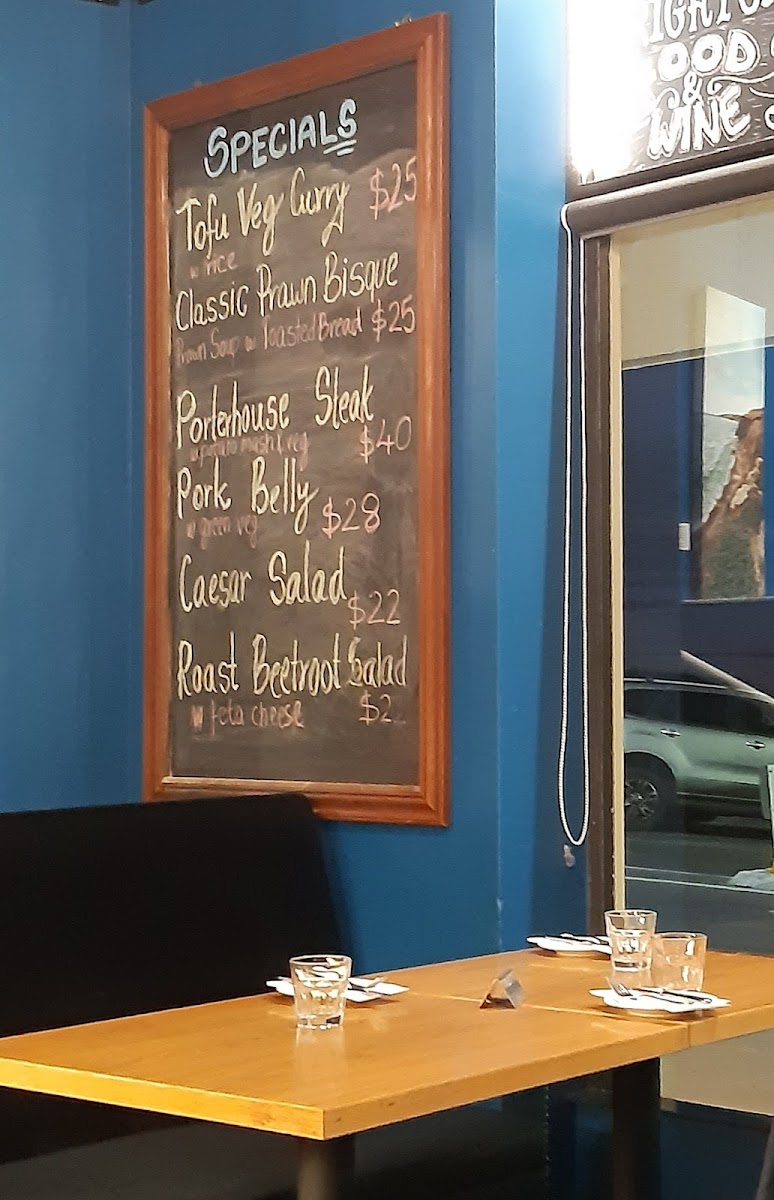 SPECIALS
Tofu Veg Curry $25
w rice
Classic Prawn Bisque
Prawn Soup w Toasted Bread $25
Porterhouse Steak
w potato mash & veg $40
Pork Belly
w green veg $28
Caesar Salad
$22
Roast Beetroot Salad
w feta cheese
OOD
&
WINE